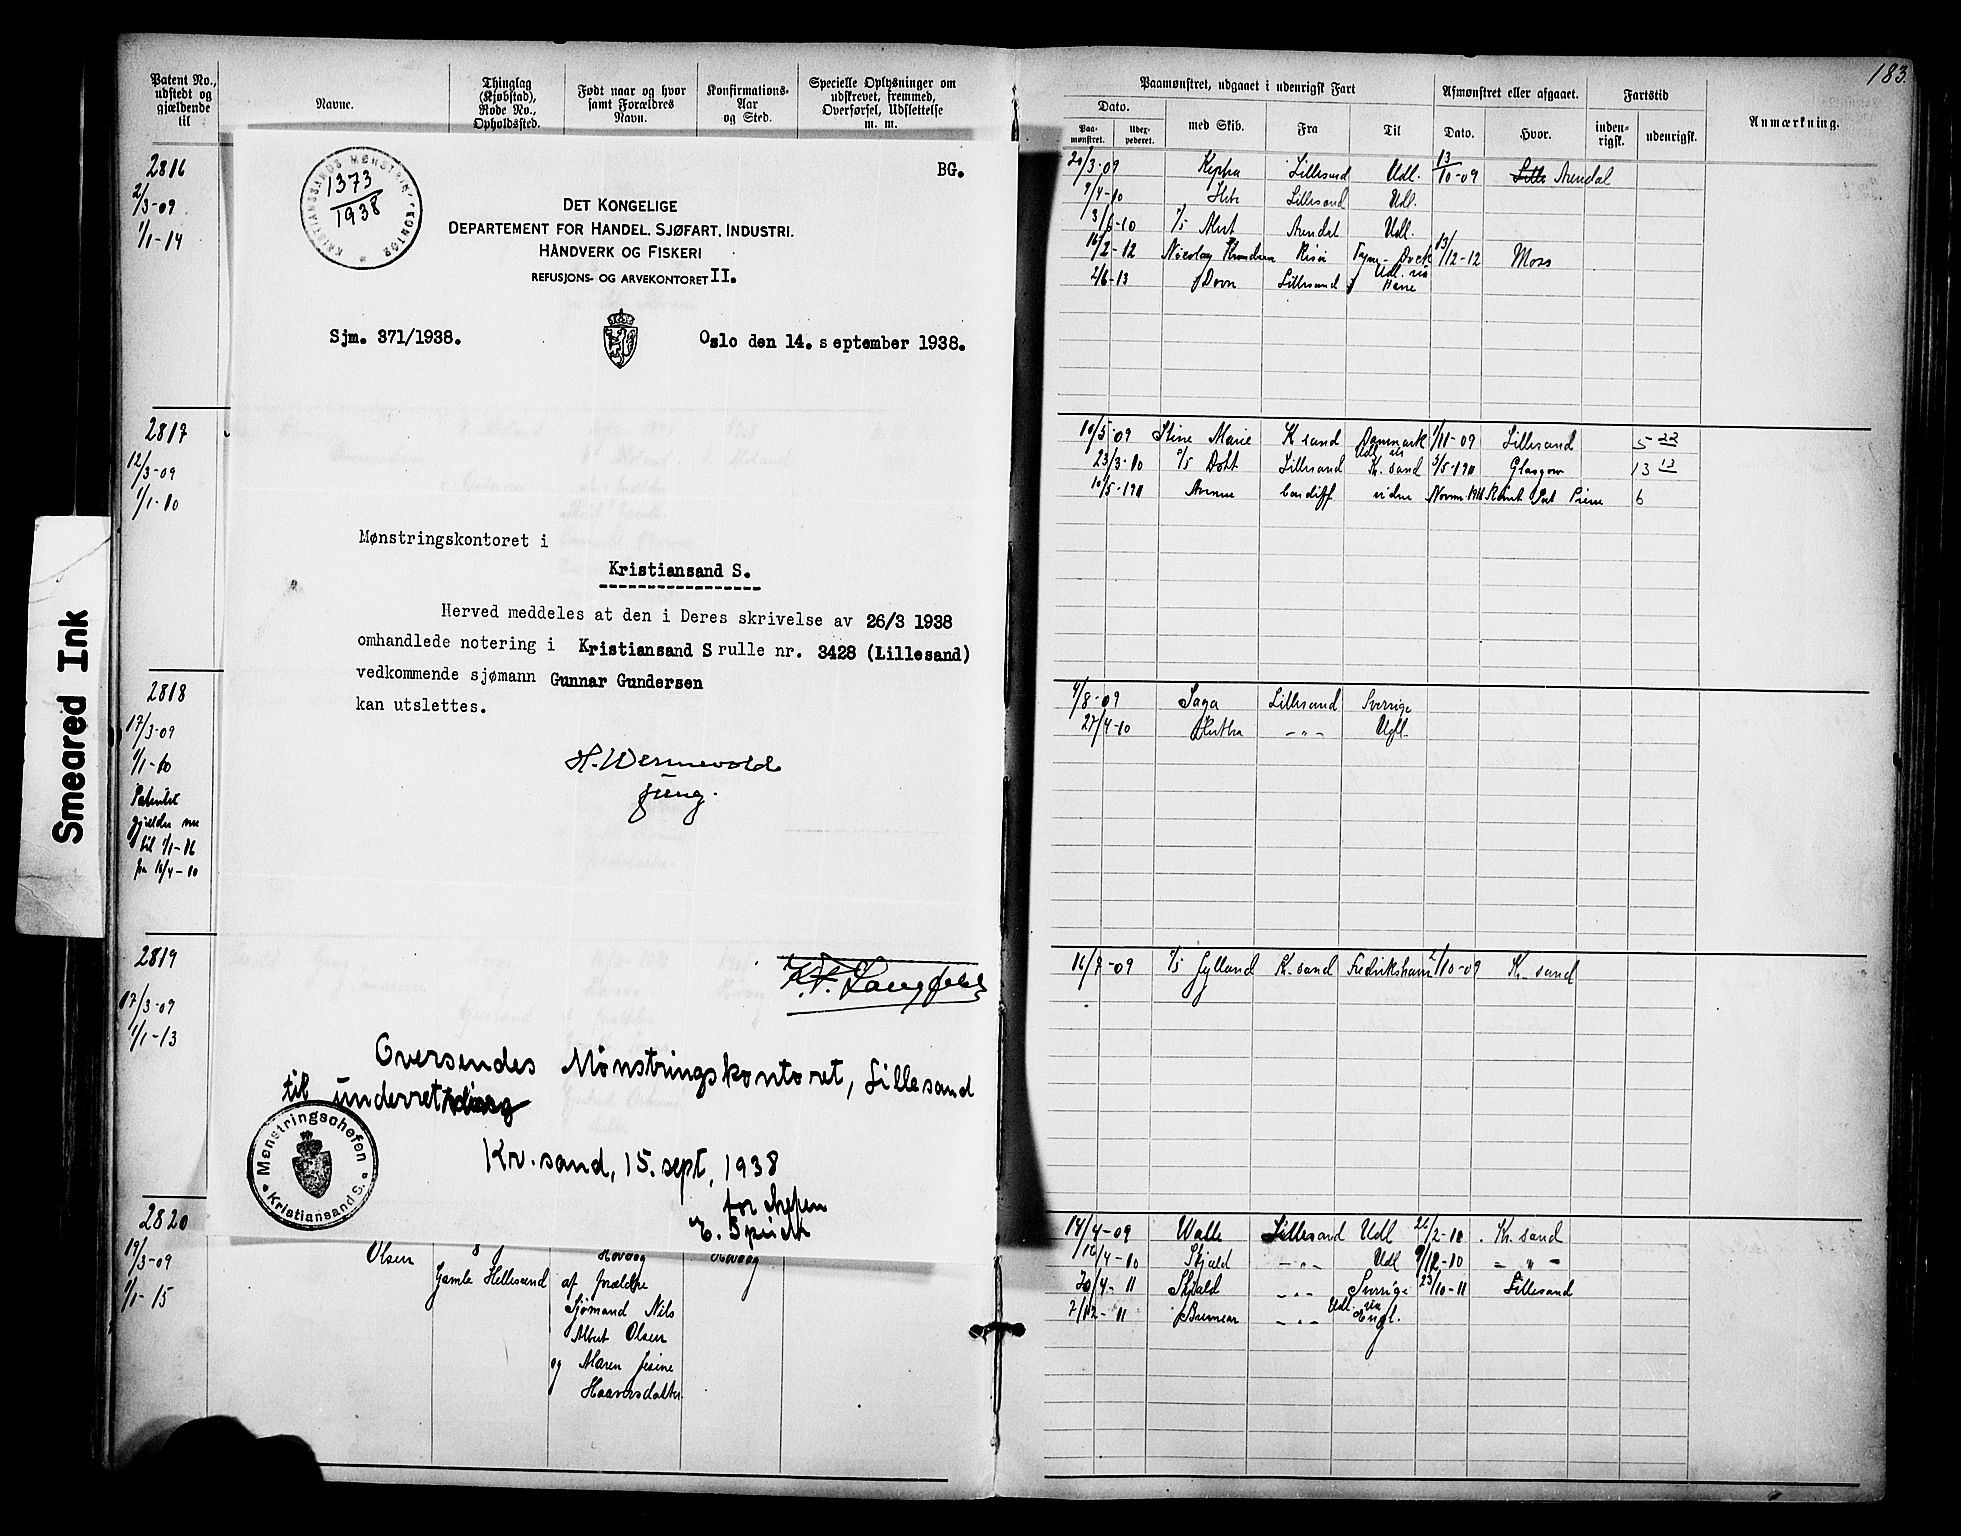 183
Patent No., udstedt og gjældende til
Navne.
Thinglag (Kjøbstad), Rode No., Opholdssted.
Født naar og hvor samt Forældres Navn.
Konfirmations-Aar og Sted.
Specielle Oplysninger om udskrevet, fremmed, Overførsel, Udslettelse m. m.
2816
2/3-09
1/1-14
2817
12/3-09
1/1-10
2818
17/3-09
1/1-10
Patentet
gjælder nu
til 1/1-16
fra 16/4-10
2819
17/3-09
1/1-13
2820
19/3-09
1/1-15
KRISTIANSSANDS MØNSTRINGSKONTOR
1373
1938
BG.
DET KONGELIGE
DEPARTEMENT FOR HANDEL, SJØFART, INDUSTRI,
HÅNDVERK OG FISKERI
REFUSJONS- OG ARVEKONTORET II.
Sjm. 371/1938.
Oslo den 14. september 1938.
Mønstringskontoret i
Kristiansand S.
Herved meddeles at den i Deres skrivelse av 26/3 1938
omhandlede notering i Kristiansand S rulle nr. 3428 (Lillesand)
vedkommende sjømann Gunnar Gundersen
kan utslettes.
H. Wermevold
fung.
Oversendes Mønstringskontoret, Lillesand
til underretning
Kr.sand, 15. sept. 1938
for chefen
Mønstringschefen
Kristiansand S.
Olsen
Gamle Hellesund
Høvaag
af forældre
Sjømand Nils
Albert Olsen
og Maren Jesine
Haavorsdatter
Høvaag
Paamønstret, udgaaet i udenrigsk Fart
Dato.
Paa-mønstret.
Udex-pederet.
med Skib.
Fra
Til
Afmønstret eller afgaaet.
Dato.
Hvor.
Fartstid
inden-rigsk.
udenrigsk.
Anmærkning.
20/3-09 Lillesand Udl. 13/10-09 Arendal
9/4-10 Hebe Lillesand Udl.
Alert Arendal Udl.
16/2-12 Nicolay Knudsen Risør Tyne-Dock 13/12-12 Moss
2/6-13 Dovre Lillesand Udl. via
10/5-09 Stine Marie K sand Danmark 1/11-09 Lillesand 5 22
23/3-10 Dott Lillesand Udl. via Kr. sand 5/5-1911 Glasgow 13 13
10/5-1911 Cardiff videre 6
4/8-09 Saga Lillesand Sverige
27/4-10 Hertha -"- Udl.
16/7-09 Jylland Kr. sand Fredrikshavn 1/10-09 Kr. sand
14/4-09 Walle Lillesand Udl 22/2-10 Kr. sand
16/4-10 Skjold -"- Udl 9/12-10 - " -
20/4-11 Skjold -"- Sverige 23/10-11 Lillesand
7/12-11 -"- Udl. via Engl.
Smeared Ink